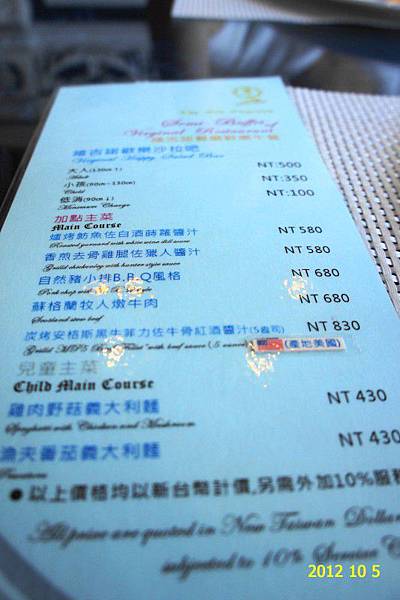 Semi Buffet
Virginal Restaurant
維吉諾歡樂沙拉吧
Virginal Happy Salad Bar
大人(130cm↑) NT:500
Adult
小孩(90cm~130cm) NT:350
Child
低消(90cm↓) NT:100
Minimum Charge
加點主菜
Main Course
爐烤魴魚佐白酒蒔蘿醬汁 NT 580
Roasted gurnard with white wine dill sauce
香煎去骨雞腿佐獵人醬汁 NT 580
自然豬小排B.B.Q風格 NT 680
蘇格蘭牧人燉牛肉 NT 680
Scotland stew beef
炭烤安格斯黑牛菲力佐牛骨紅酒醬汁(5盎司) NT 830
(產地美國)
兒童主菜
Child Main Course
雞肉野菇義大利麵 NT 430
Spaghetti with Chicken and Mushroom
漁夫番茄義大利麵 NT 430
●以上價格均以新台幣計價,另需外加10%服務
All price are quoted in New Taiwan Dollar
subjected to 10% Service
2012 10 5